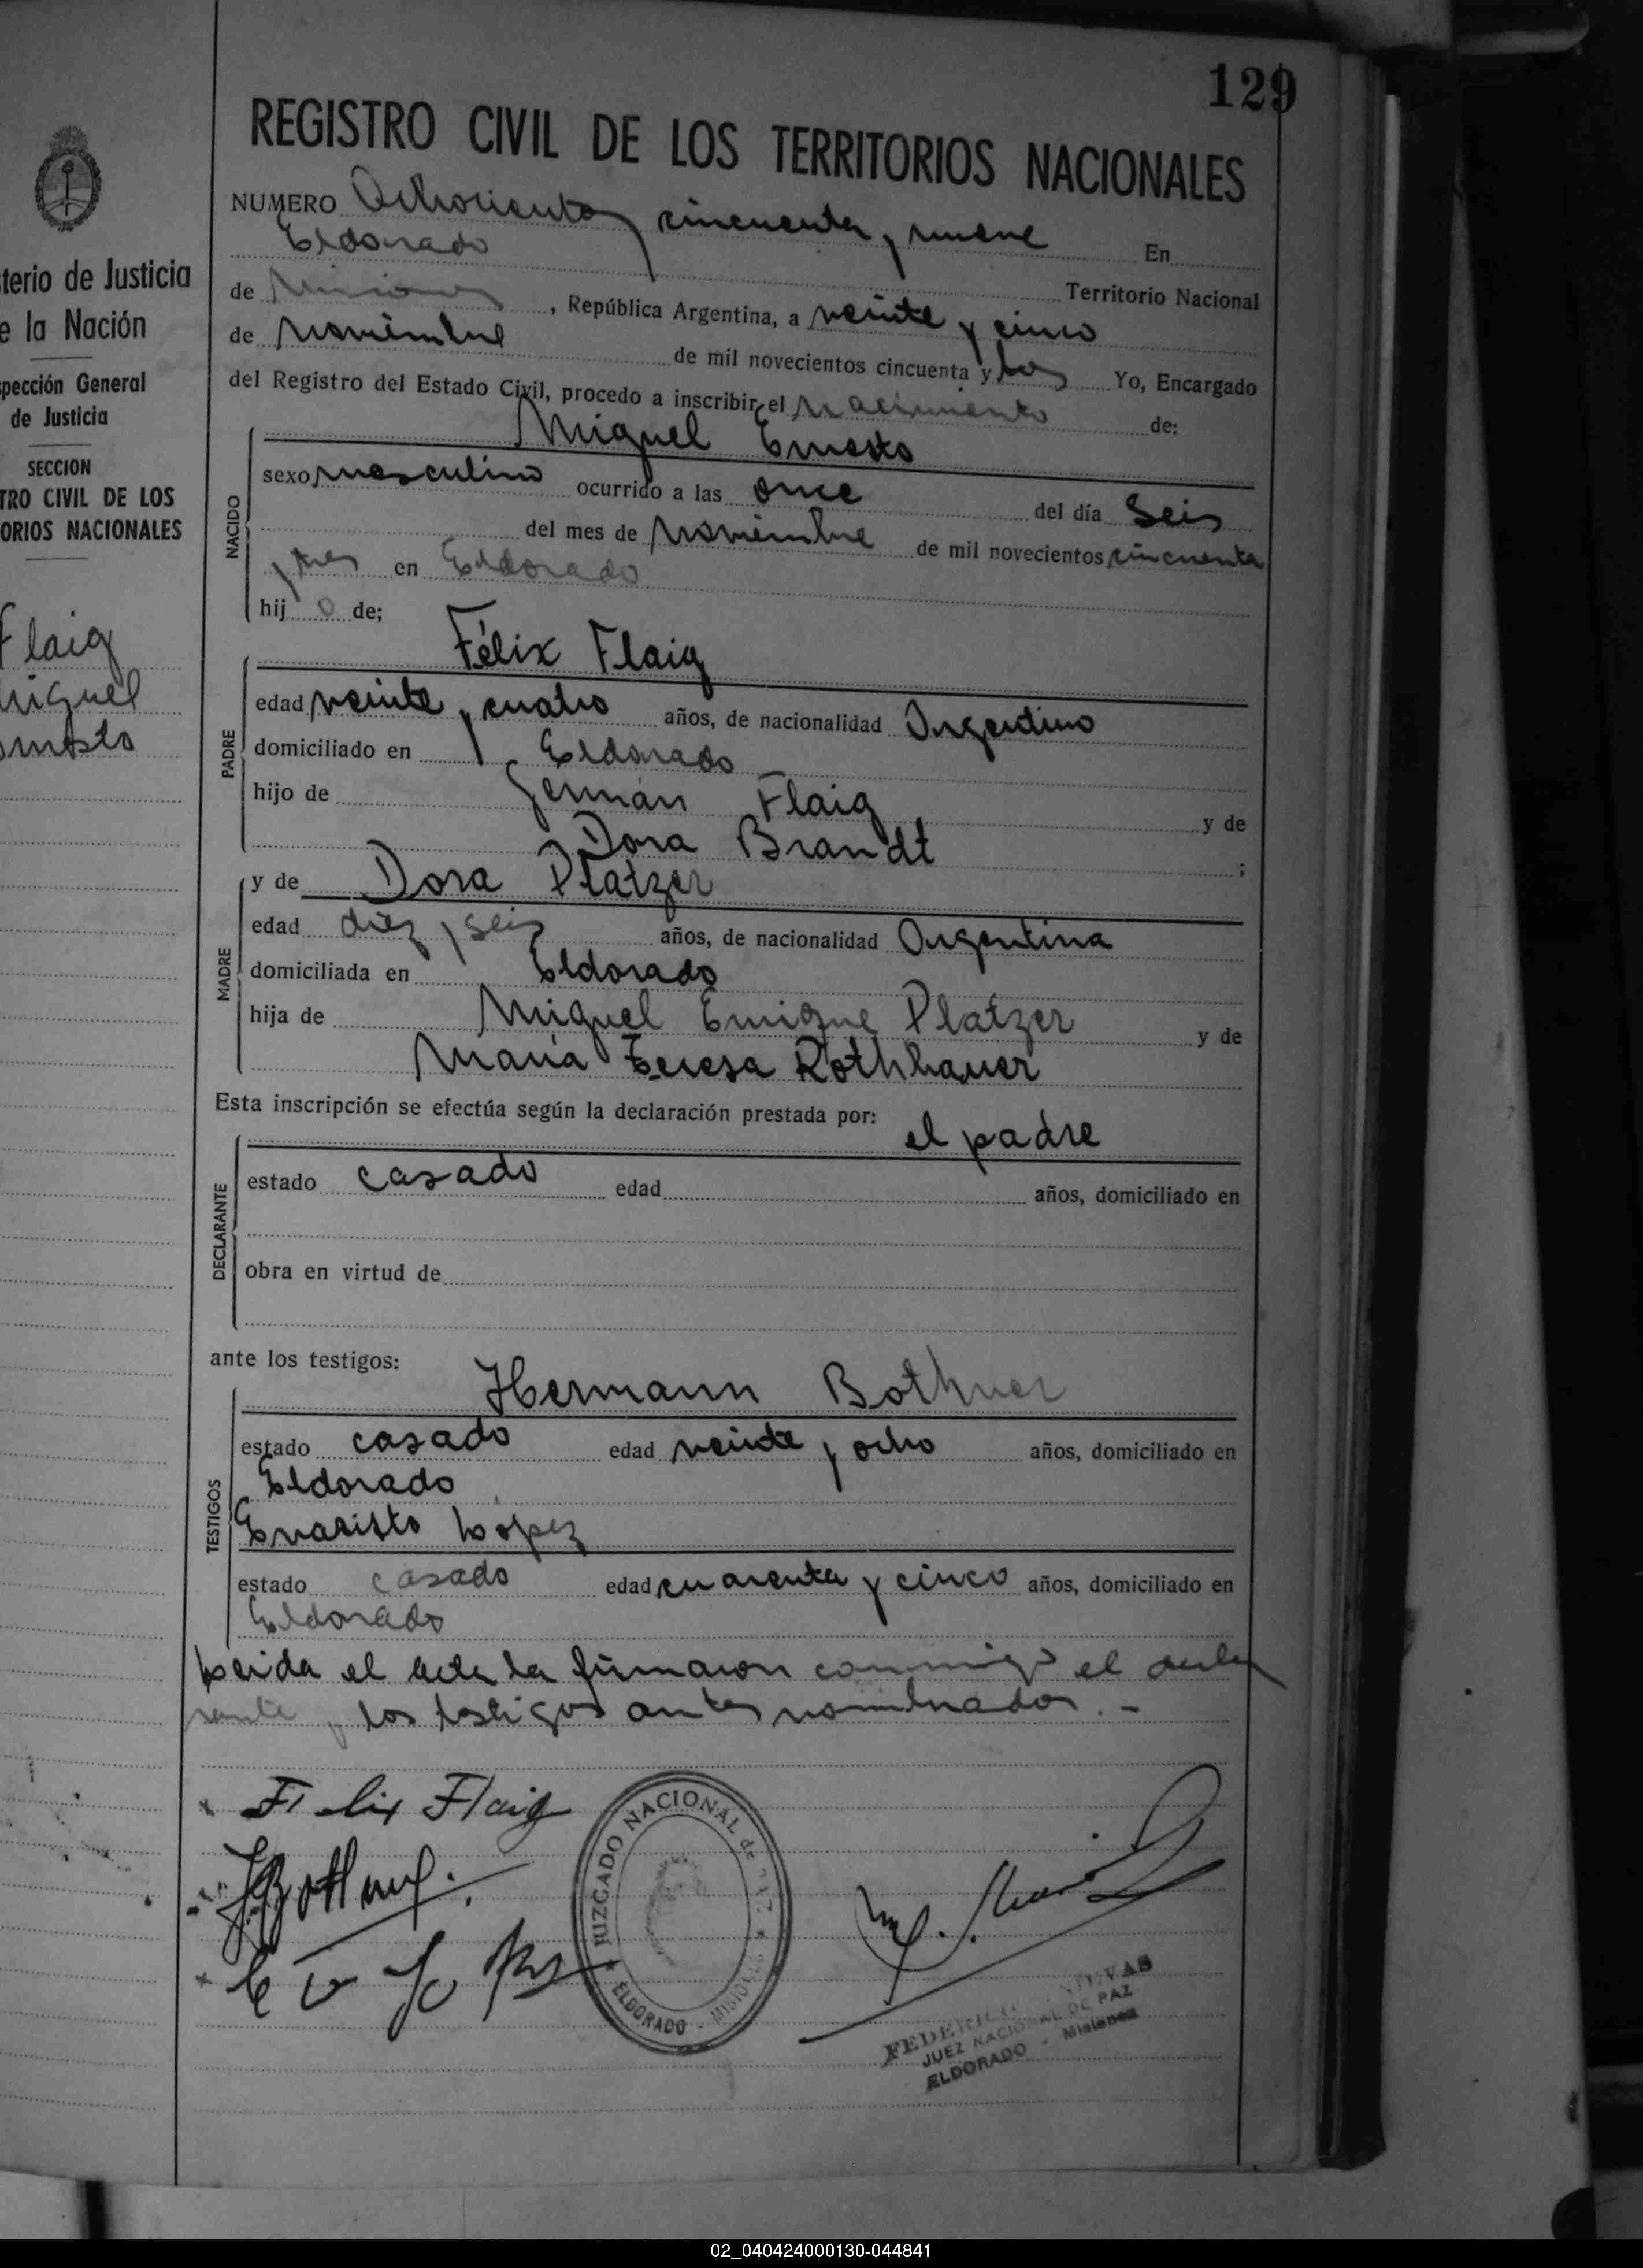 129
REGISTRO CIVIL DE LOS TERRITORIOS NACIONALES
NUMERO Ochocientos cincuenta y nueve En
Eldorado Territorio Nacional
de Misiones, República Argentina, a veinte y cinco
de noviembre de mil novecientos cincuenta y Yo, Encargado
del Registro del Estado Civil, procedo a inscribir el nacimiento de:
Miguel Ernesto
NACIDO
sexo masculino ocurrido a las once del día Seis
del mes de Noviembre de mil novecientos cincuenta
y tres en Eldorado
hij o de;
Félix Flaig
PADRE
edad veinte y cuatro años, de nacionalidad Argentino
domiciliado en Eldorado
hijo de Germán Flaig y de
Dora Brandt ;
y de Dora Platzer
MADRE
edad diez y seis años, de nacionalidad Argentina
domiciliada en Eldorado
hija de Miguel Enrique Platzer y de
María Teresa Rothbauer
Esta inscripción se efectúa según la declaración prestada por: el padre
DECLARANTE
estado casado edad años, domiciliado en
obra en virtud de
ante los testigos:
Hermann Bothner
TESTIGOS
estado casado edad veinte y ocho años, domiciliado en
Eldorado
Evaristo Lopez
estado casado edad cuarenta y cinco años, domiciliado en
Eldorado
Leida el acta la firmaron conmigo el decla
rante y los testigos antes nombrados. -
Felix Flaig
JUZGADO NACIONAL de PAZ
ELDORADO - MISIONES
JUEZ NACIONAL DE PAZ
ELDORADO - Misiones
terio de Justicia
e la Nación
pección General
de Justicia
SECCION
TRO CIVIL DE LOS
ORIOS NACIONALES
Flaig
Miguel
Ernesto
02_040424000130-044841